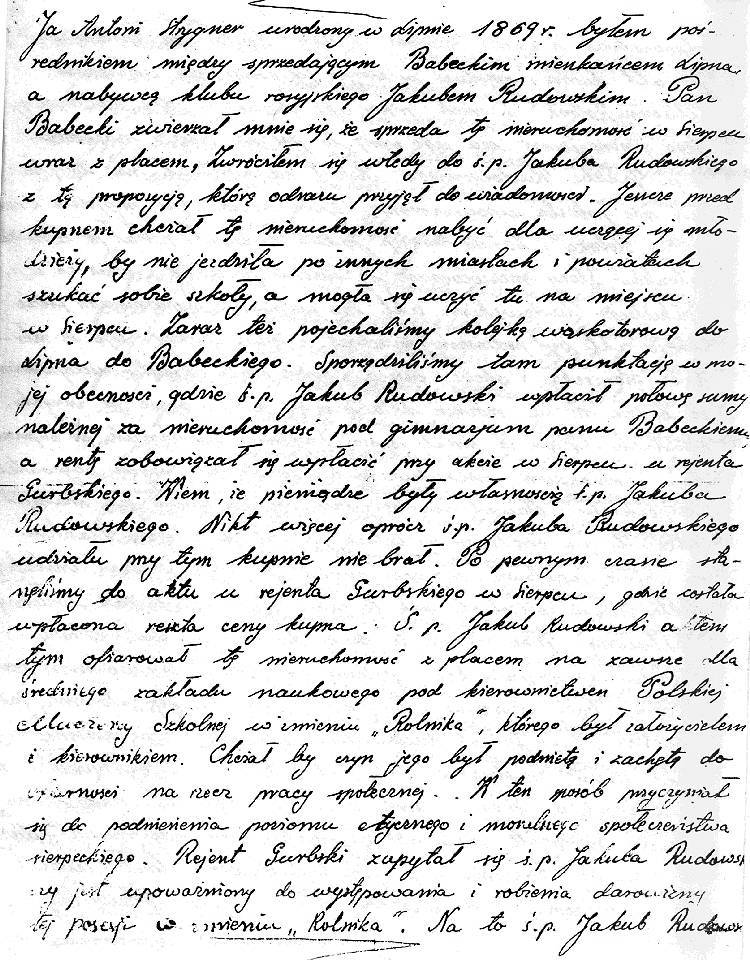 Ja Antoni Strygner urodzony w Lipnie 1869 r. byłem poś-
rednikiem między sprzedającym Babeckim mieszkańcem Lipna,
a nabywcą klubu rosyjskiego Jakubem Rudowskim. Pan
Babecki zwierzał mnie się, że sprzeda tę nieruchomość w Sierpcu
wraz z placem, Zwróciłem się wtedy do ś.p. Jakuba Rudowskiego
z tą propozycją, którą odrazu przyjął do wiadomości. Jeszcze przed
kupnem chciał tę nieruchomość nabyć dla uczącej się mło-
dzieży, by nie jeździła po innych miastach i powiatach
szukać sobie szkoły, a mogła się uczyć tu na miejscu
w Sierpcu. Zaraz też pojechaliśmy kolejką wąskotorową do
Lipna do Babeckiego. Sporządziliśmy tam punktację w mo-
jej obecności, gdzie ś.p. Jakub Rudowski wpłacił połowę sumy
należnej za nieruchomość pod gimnazjum panu Babeckiemu,
a resztę zobowiązał się wpłacić przy akcie w Sierpcu u rejenta
Gurbskiego. Wiem, że pieniądze były własnością ś.p. Jakuba
Rudowskiego. Nikt więcej oprócz ś.p. Jakuba Rudowskiego
udziału przy tym kupnie nie brał. Po pewnym czasie sta-
nęliśmy do aktu u rejenta Gurbskiego w Sierpcu, gdzie została
wpłacona reszta ceny kupna. Ś.p. Jakub Rudowski aktem
tym ofiarował tę nieruchomość z placem na zawsze dla
średniego zakładu naukowego pod kierownictwem Polskiej
Macierzy Szkolnej w imieniu „Rolnika", którego był założycielem
i kierownikiem. Chciał by czyn jego był podnietą i zachętą do
ofiarności na rzecz pracy społecznej. W ten sposób przyczyniał
się do podniesienia poziomu etycznego i moralnego społeczeństwa
sierpeckiego. Rejent Gurbski zapytał się ś.p. Jakuba Rudows
czy jest upoważniony do występowania i robienia darowizny
tej posesji w imieniu „Rolnika". Na to ś.p. Jakub Rudows